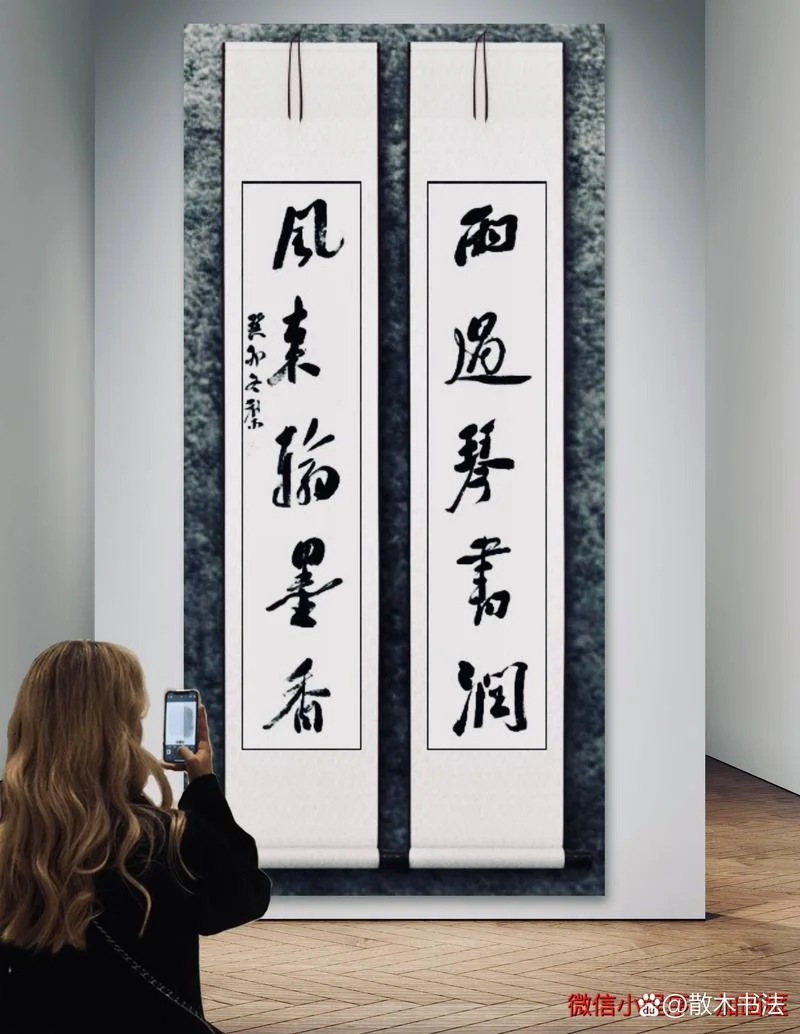 雨過琴書潤
風來翰墨香
癸卯
微信小
@散木书法